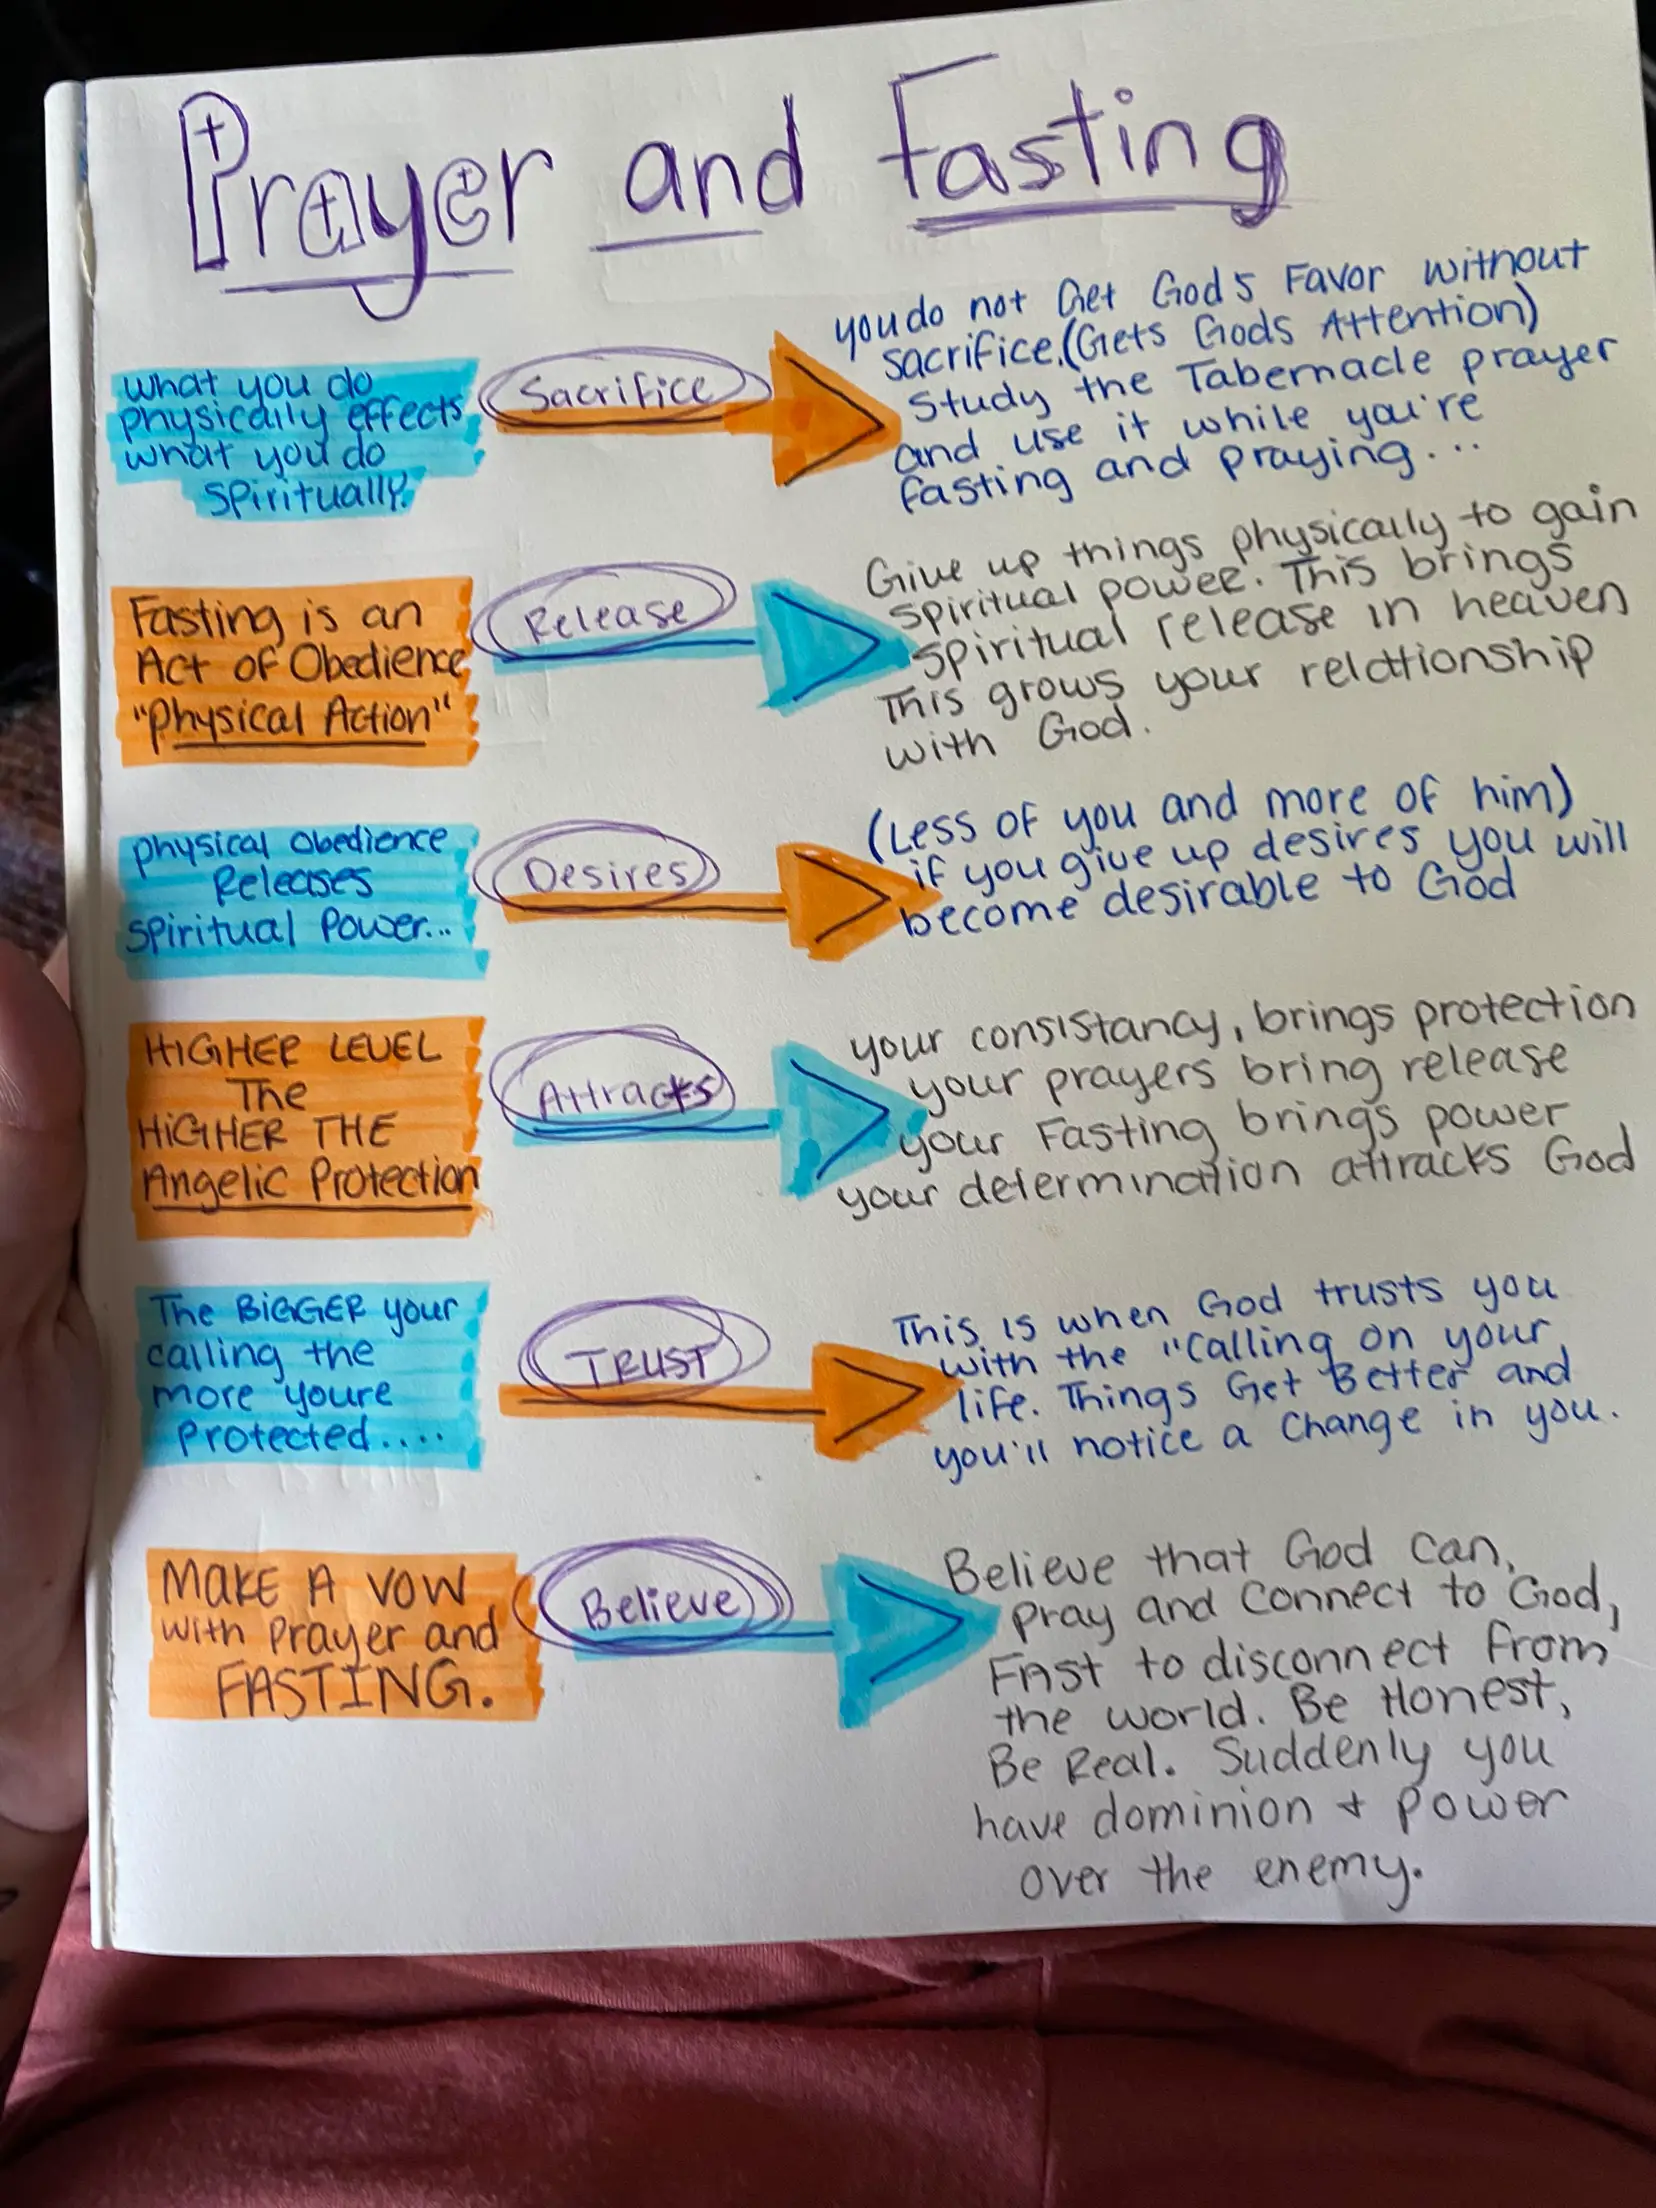 Prayer and Fasting
what you do
physically effects
what you do
spiritually.
Sacrifice
you do not Get Gods Favor without
sacrifice.(Gets Gods Attention)
Study the Tabernacle prayer
and use it while you're
fasting and praying...
Fasting is an
Act of Obedience
"Physical Action"
Release
Give up things physically to gain
spiritual power. This brings
spiritual release in heaven
This grows your relationship
with God.
physical obedience
Releases
spiritual Power...
Desires
(Less of you and more of him)
if you give up desires you will
become desirable to God
HIGHER LEVEL
The
HIGHER THE
Angelic Protection
Attracts
your consistancy, brings protection
your prayers bring release
your Fasting brings power
your determination attracks God
The BIGGER your
calling the
more youre
Protected....
TRUST
This is when God trusts you
with the "calling on your
life. Things Get Better and
you'll notice a change in you.
MAKE A VOW
with Prayer and
FASTING.
Believe
Believe that God can,
pray and connect to God,
FAST to disconnect from
the world. Be Honest,
Be Real. Suddenly you
have dominion + power
over the enemy.